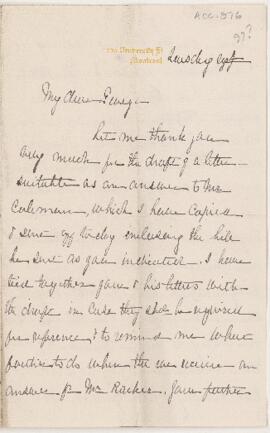 ACC. 576
University St
Montreal
My dear
Let me thank you
very much for the draft of a letter
suitable as an answer to Mr
Coleman, which I have copied
& sent off today enclosing the bill
he sent as you indicated. I have
tied together your & his letters with
the draft in case they shd. be required
for reference & to remind me what
to do when the we receive an
answer fr Mr